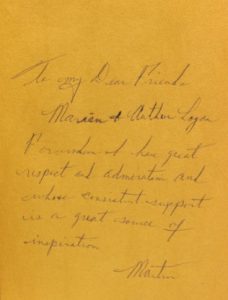 To my Dear Friends
Marian & Arthur Logan
For whom I have great
respect and admiration and
whose consistent support
is a great source of
inspiration
Martin